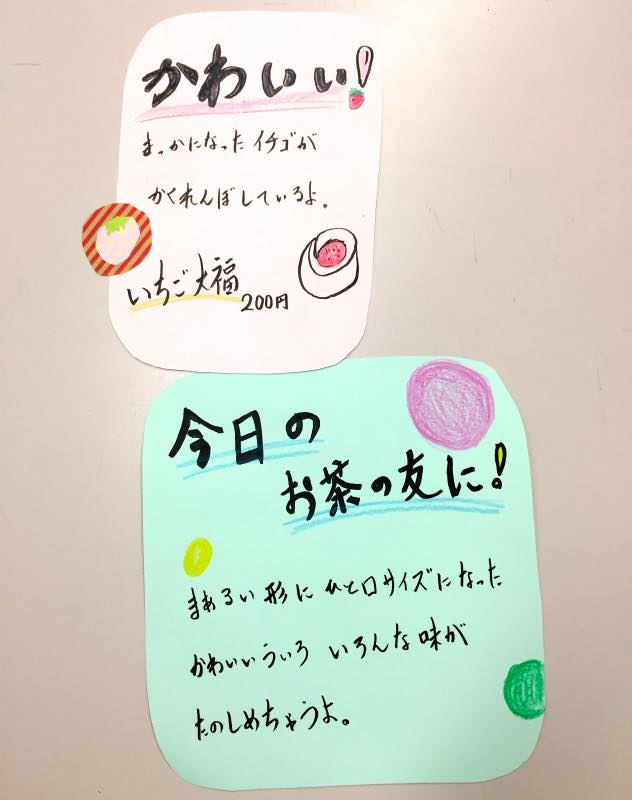 かわいい!
まっかになったイチゴが
かくれんぼしているよ。
いちご大福
200円
今日の
お茶の友に!
まあるい形にひと口サイズになった
かわいいういろ いろんな味が
たのしめちゃうよ。